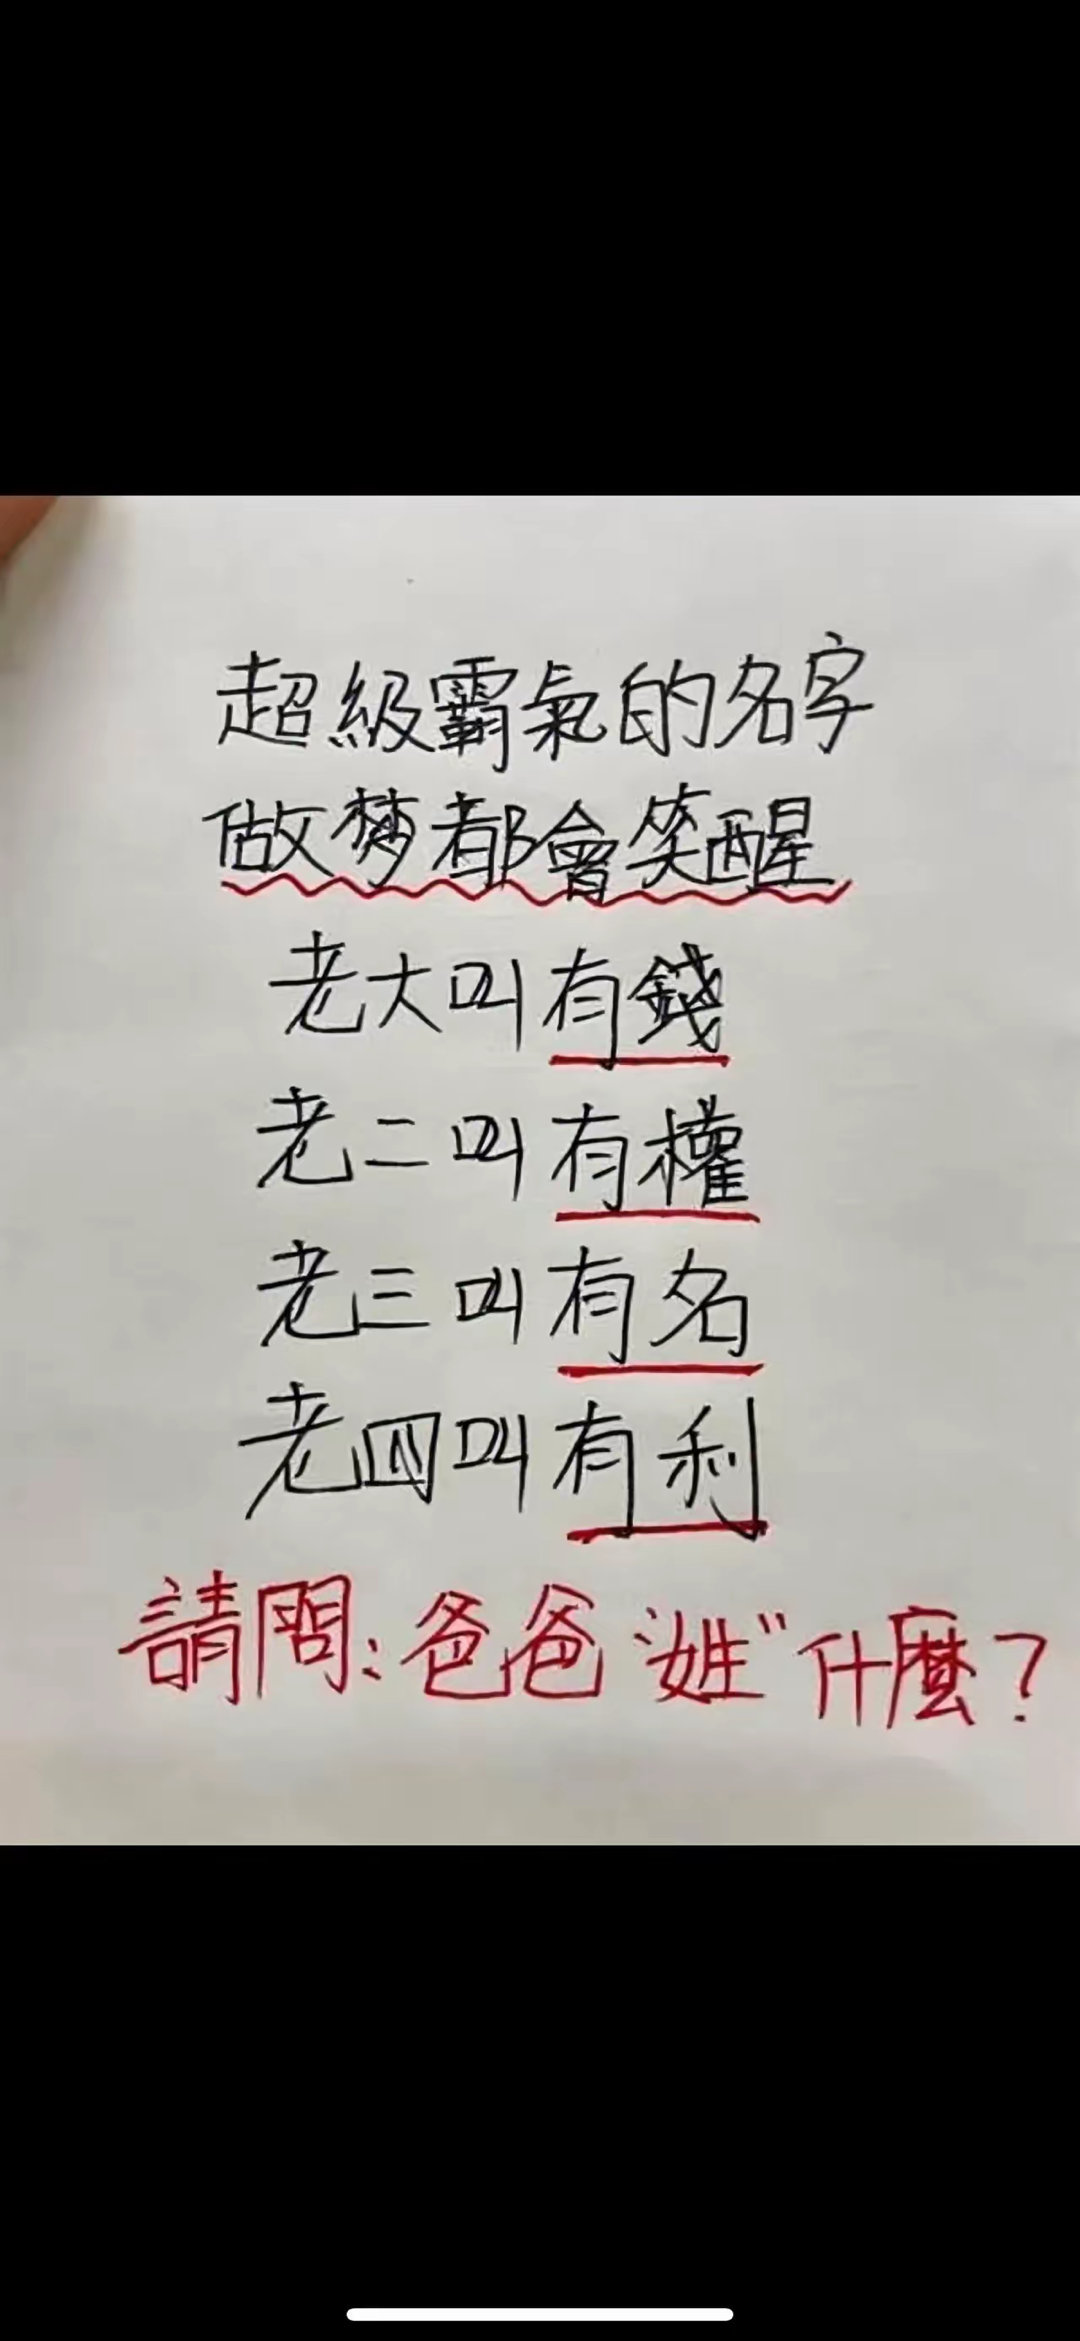 超級霸氣的名字
做梦都會笑醒
老大叫有錢
老二叫有權
老三叫有名
老四叫有利
請問:爸爸"姓"什麼?